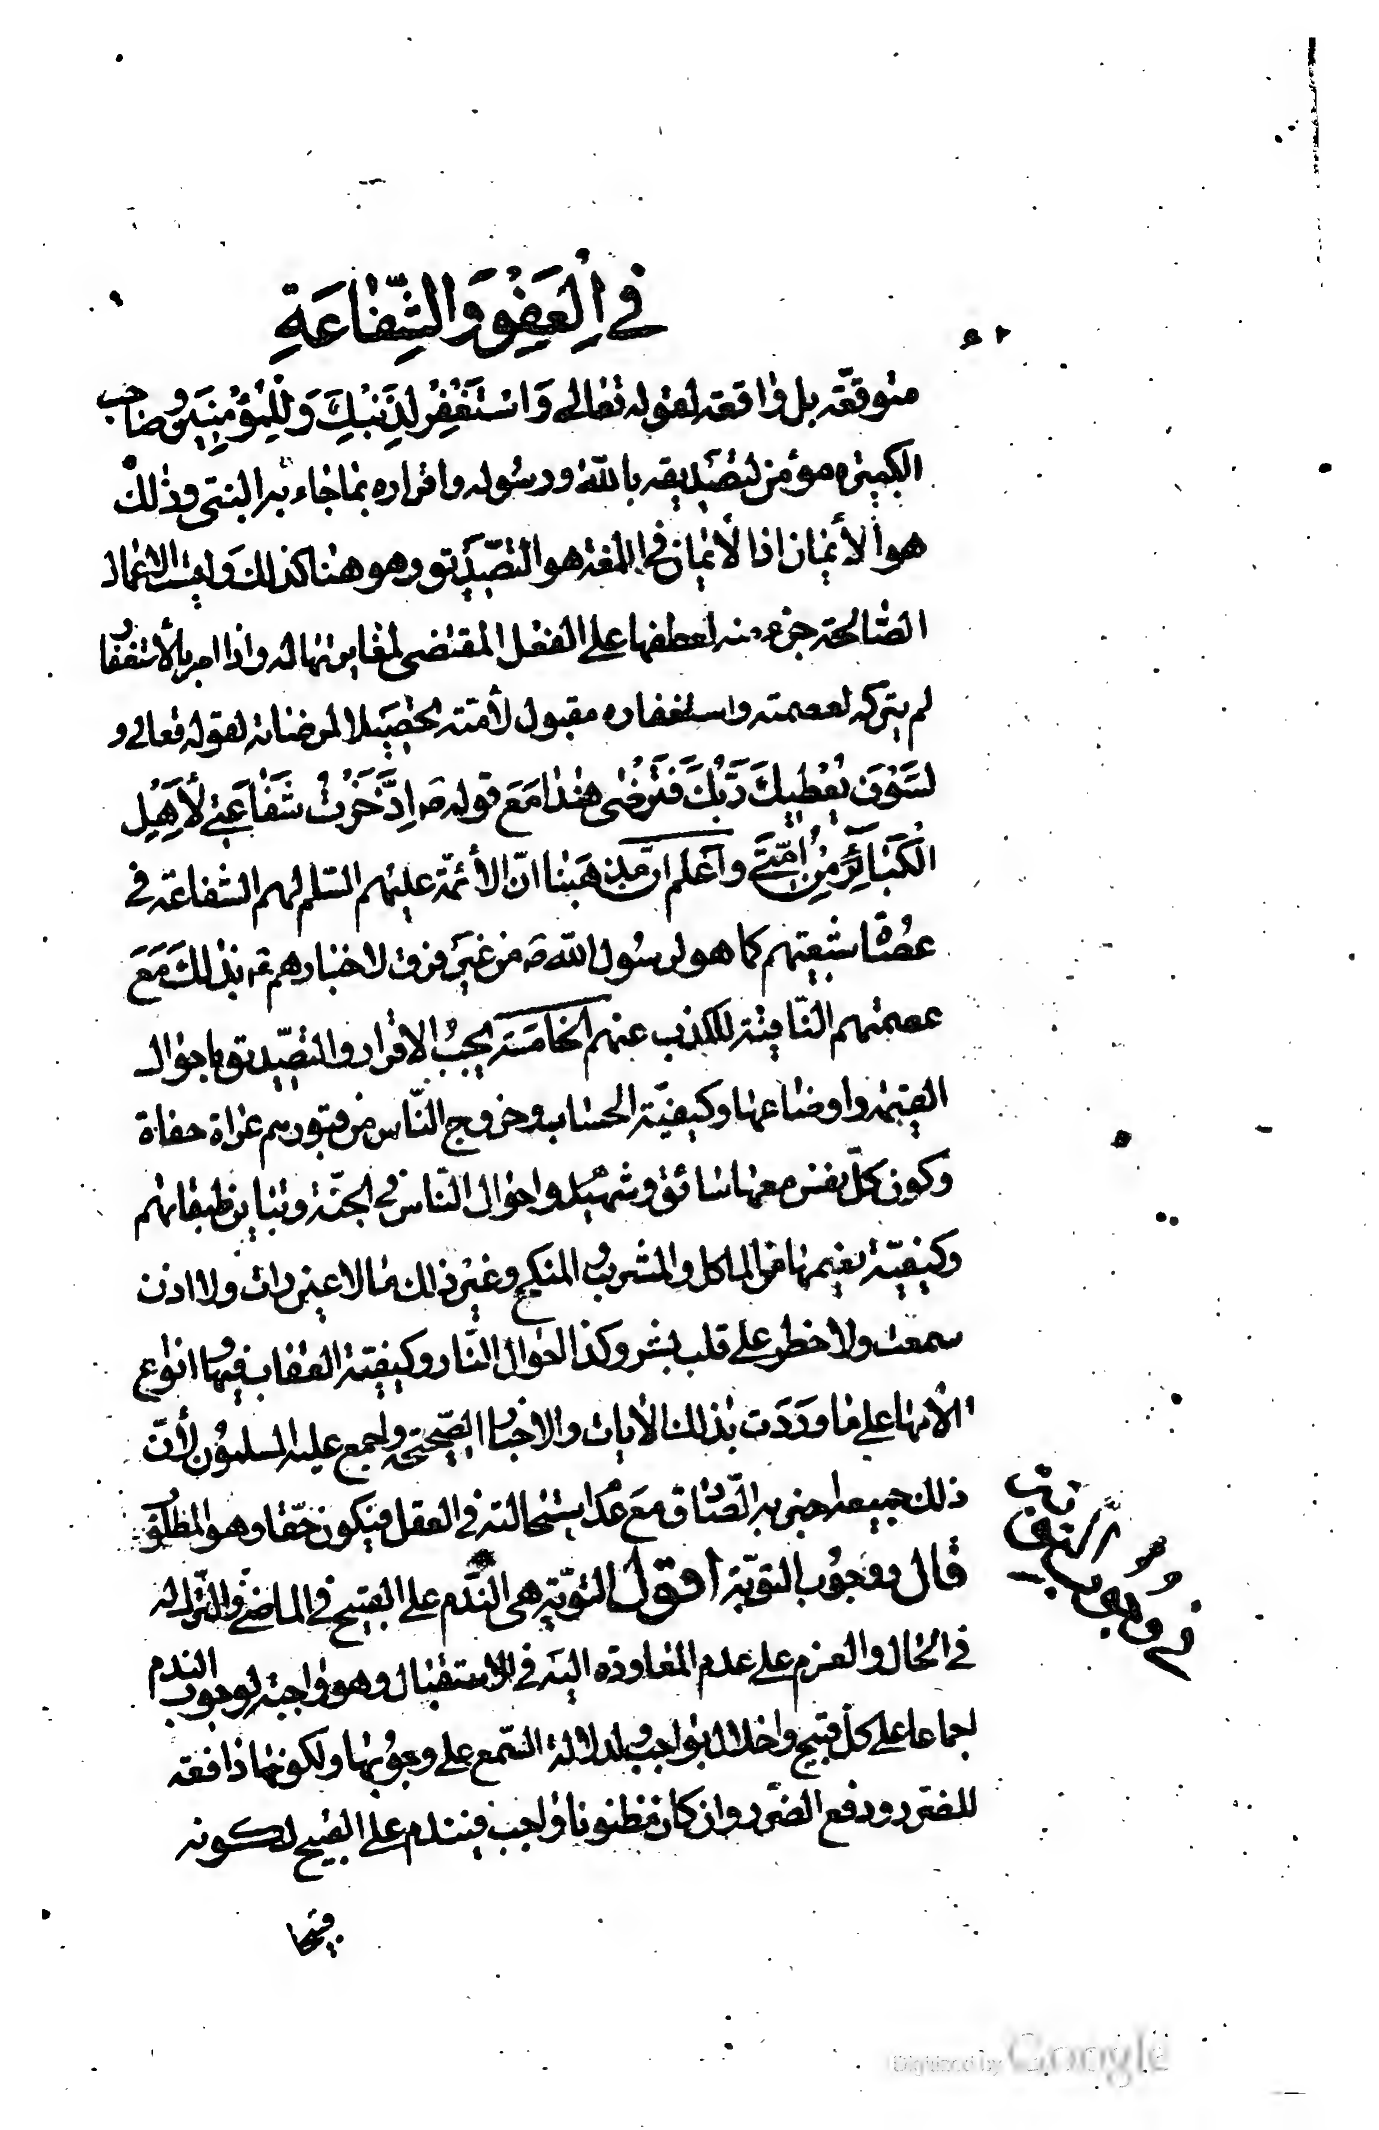 في العفو والشفاعة
متوقعة بل واقعة لقوله تعالى وَاسْتَغْفِرْ لِذَنْبِكَ وَلِلْمُؤْمِنِينَ وصاحب
الكبيره مؤمن لتصديقه بالله ورسوله واقراره بما جاء به النبى وذلك
هو الأيمان اذا لأيمان في اللغة هو التصديق وهو هنا كذلك وليت الاعمال
الصالحة جزء منه لعطفها على الفعل المقتضى لمغايرتها له واذا امر بالأستغفار
لم يتركه لعصمته واستغفاره مقبول لأمته تحصيلا لمرضاته لقوله تعالى و
لَسَوْفَ يُعْطِيكَ رَبُّكَ فَتَرْضى هذا مَعَ قوله ص اِدَّخَرْتُ شَفَاعَتي لأَهْلِ
الْكَبَائِرِ مِنْ اُمَّتي واعلم انّ مذهبنا انّ الأئمّة عليهم السّلم لهم الشفاعة في
عصُاة شيعتهم كما هو لرسُول الله ص من غير فرق لاخبارهم ع بذلك مَعَ
عصمتهم النافية للكذب عنهم الخامسة يجبُ الاقرار والتصديق باحوال
القيمة واوضاعها وكيفيّة الحساب وخروج النّاس من قبورهم عراة حفاة
وكون كلّ نفس معها سائق وشهيد واحوال الناس في الجنّة وتباين طبقاتهم
وكيفيّة نعيمها من الماكل والمشرب والمنكح وغير ذلك ممّا لا عين رات ولا اذن
سمعت ولا خطر على قلب بشر وكذا احوال النّار وكيفيّة العقاب فيها وانواع
الآمها على ما وردَت بذلك الآيات والاخبار الصّحيحة واجمع عليه المسلمُون لأنّ
ذلك جميعا اخبر به الصّادق مَع عَدم استحالته في العقل فيكون حقّا وهو المطلوب
قال ووجُوب التوبة اقول التوبة هي النّدم على القبيح في الماضي والترك له
في الحال والعزم على عدم المعاودة اليه في الاستقبال وهو واجبة لوجوب الندم
اجماعا على كلّ قبيح واخلال بواجب ولدلالة السّمع على وجُوبها ولكونها دافعة
للضرر ودفع الضرر وان كان مظنونا واجب فيندم على القبيح لكونه
قبيحا
في وجوب التوبة